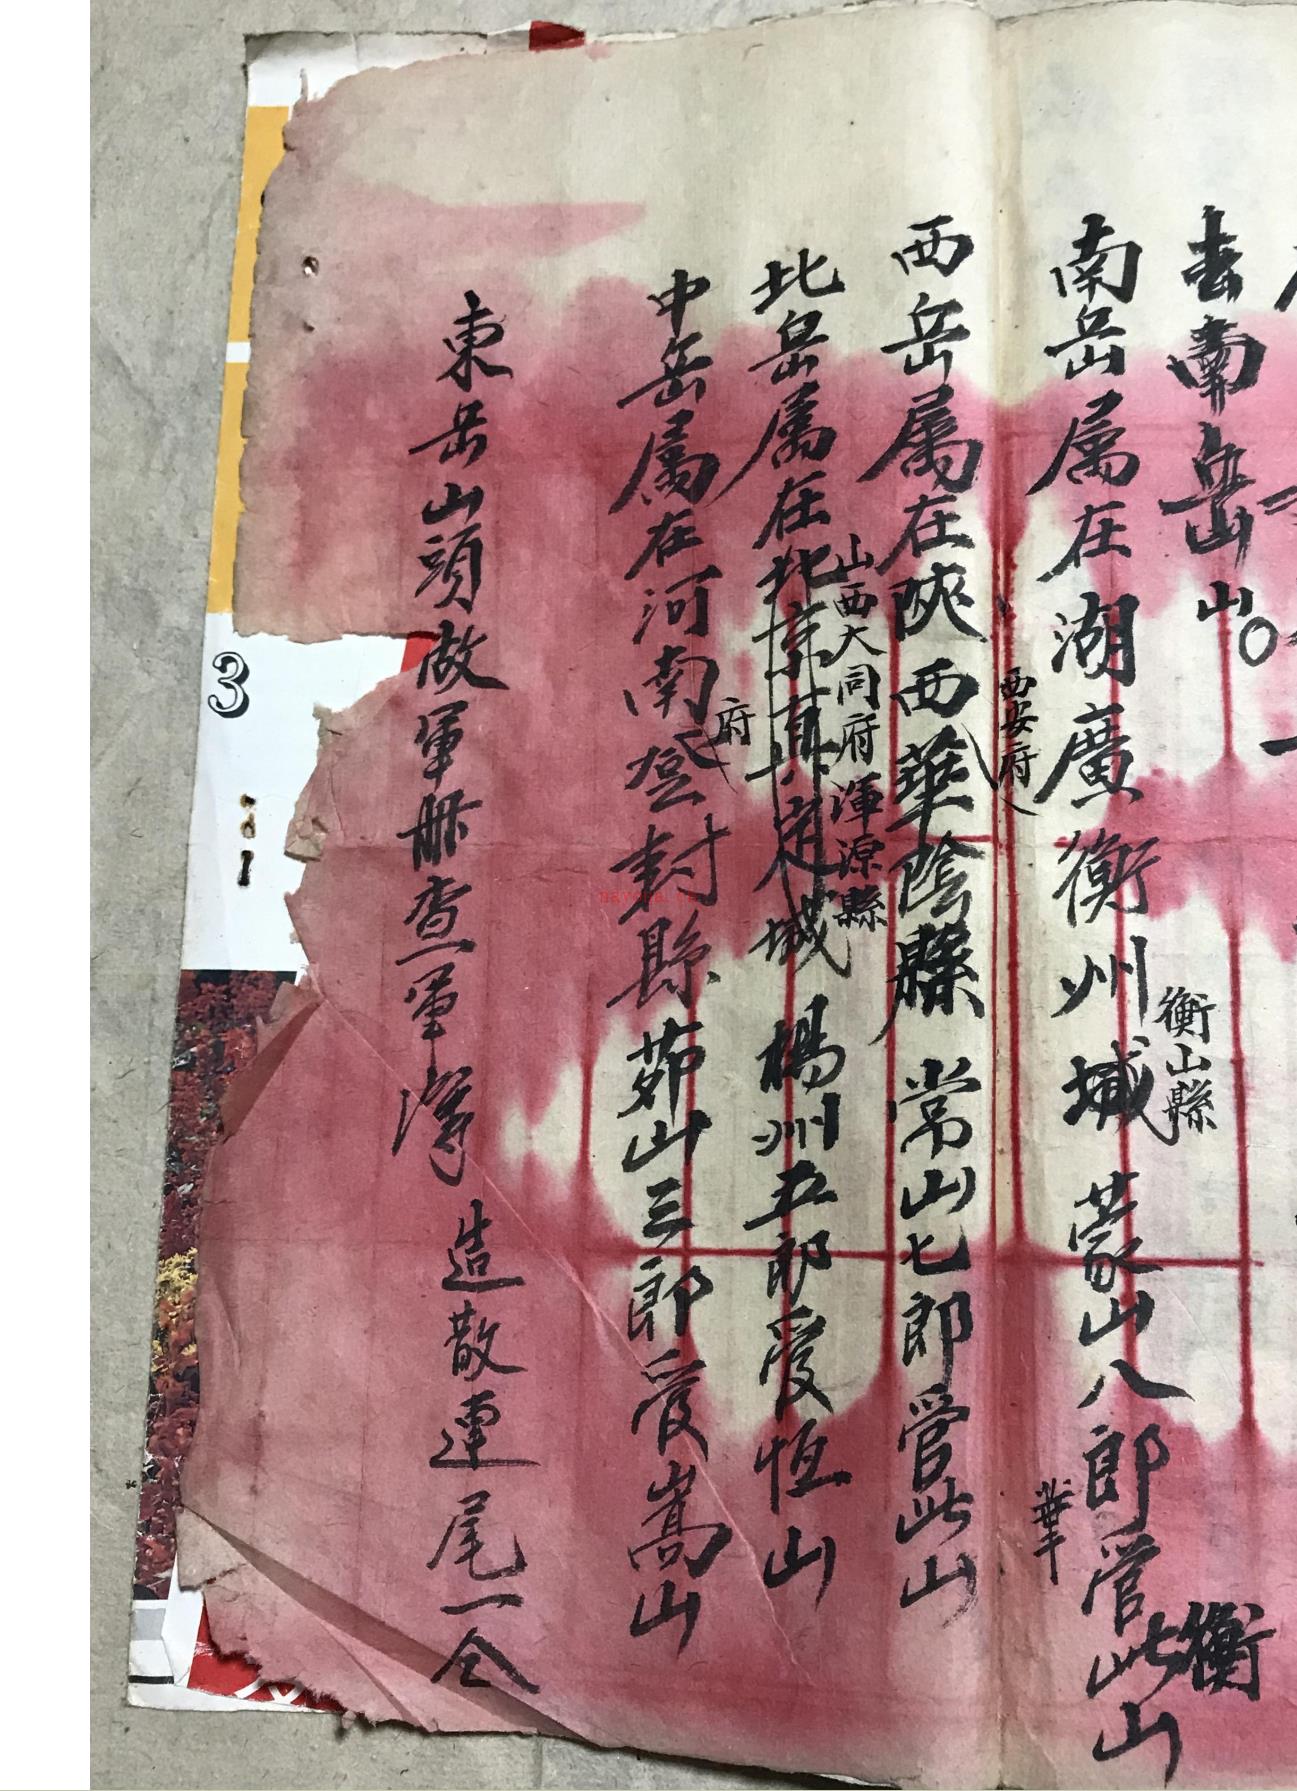 去南岳山
南岳属在湖廣衡州城 蒙山八郎管此山
衡山縣
衡
西岳属在陝西華陰縣 常山七郎管此山
西安府
華
北岳属在北京真定城 楊州五郎管恒山
山西大同府渾源縣
中岳属在河南登封縣 茆山三郎管嵩山
府
東岳山頭做軍册查軍 造散連尾一仝
3